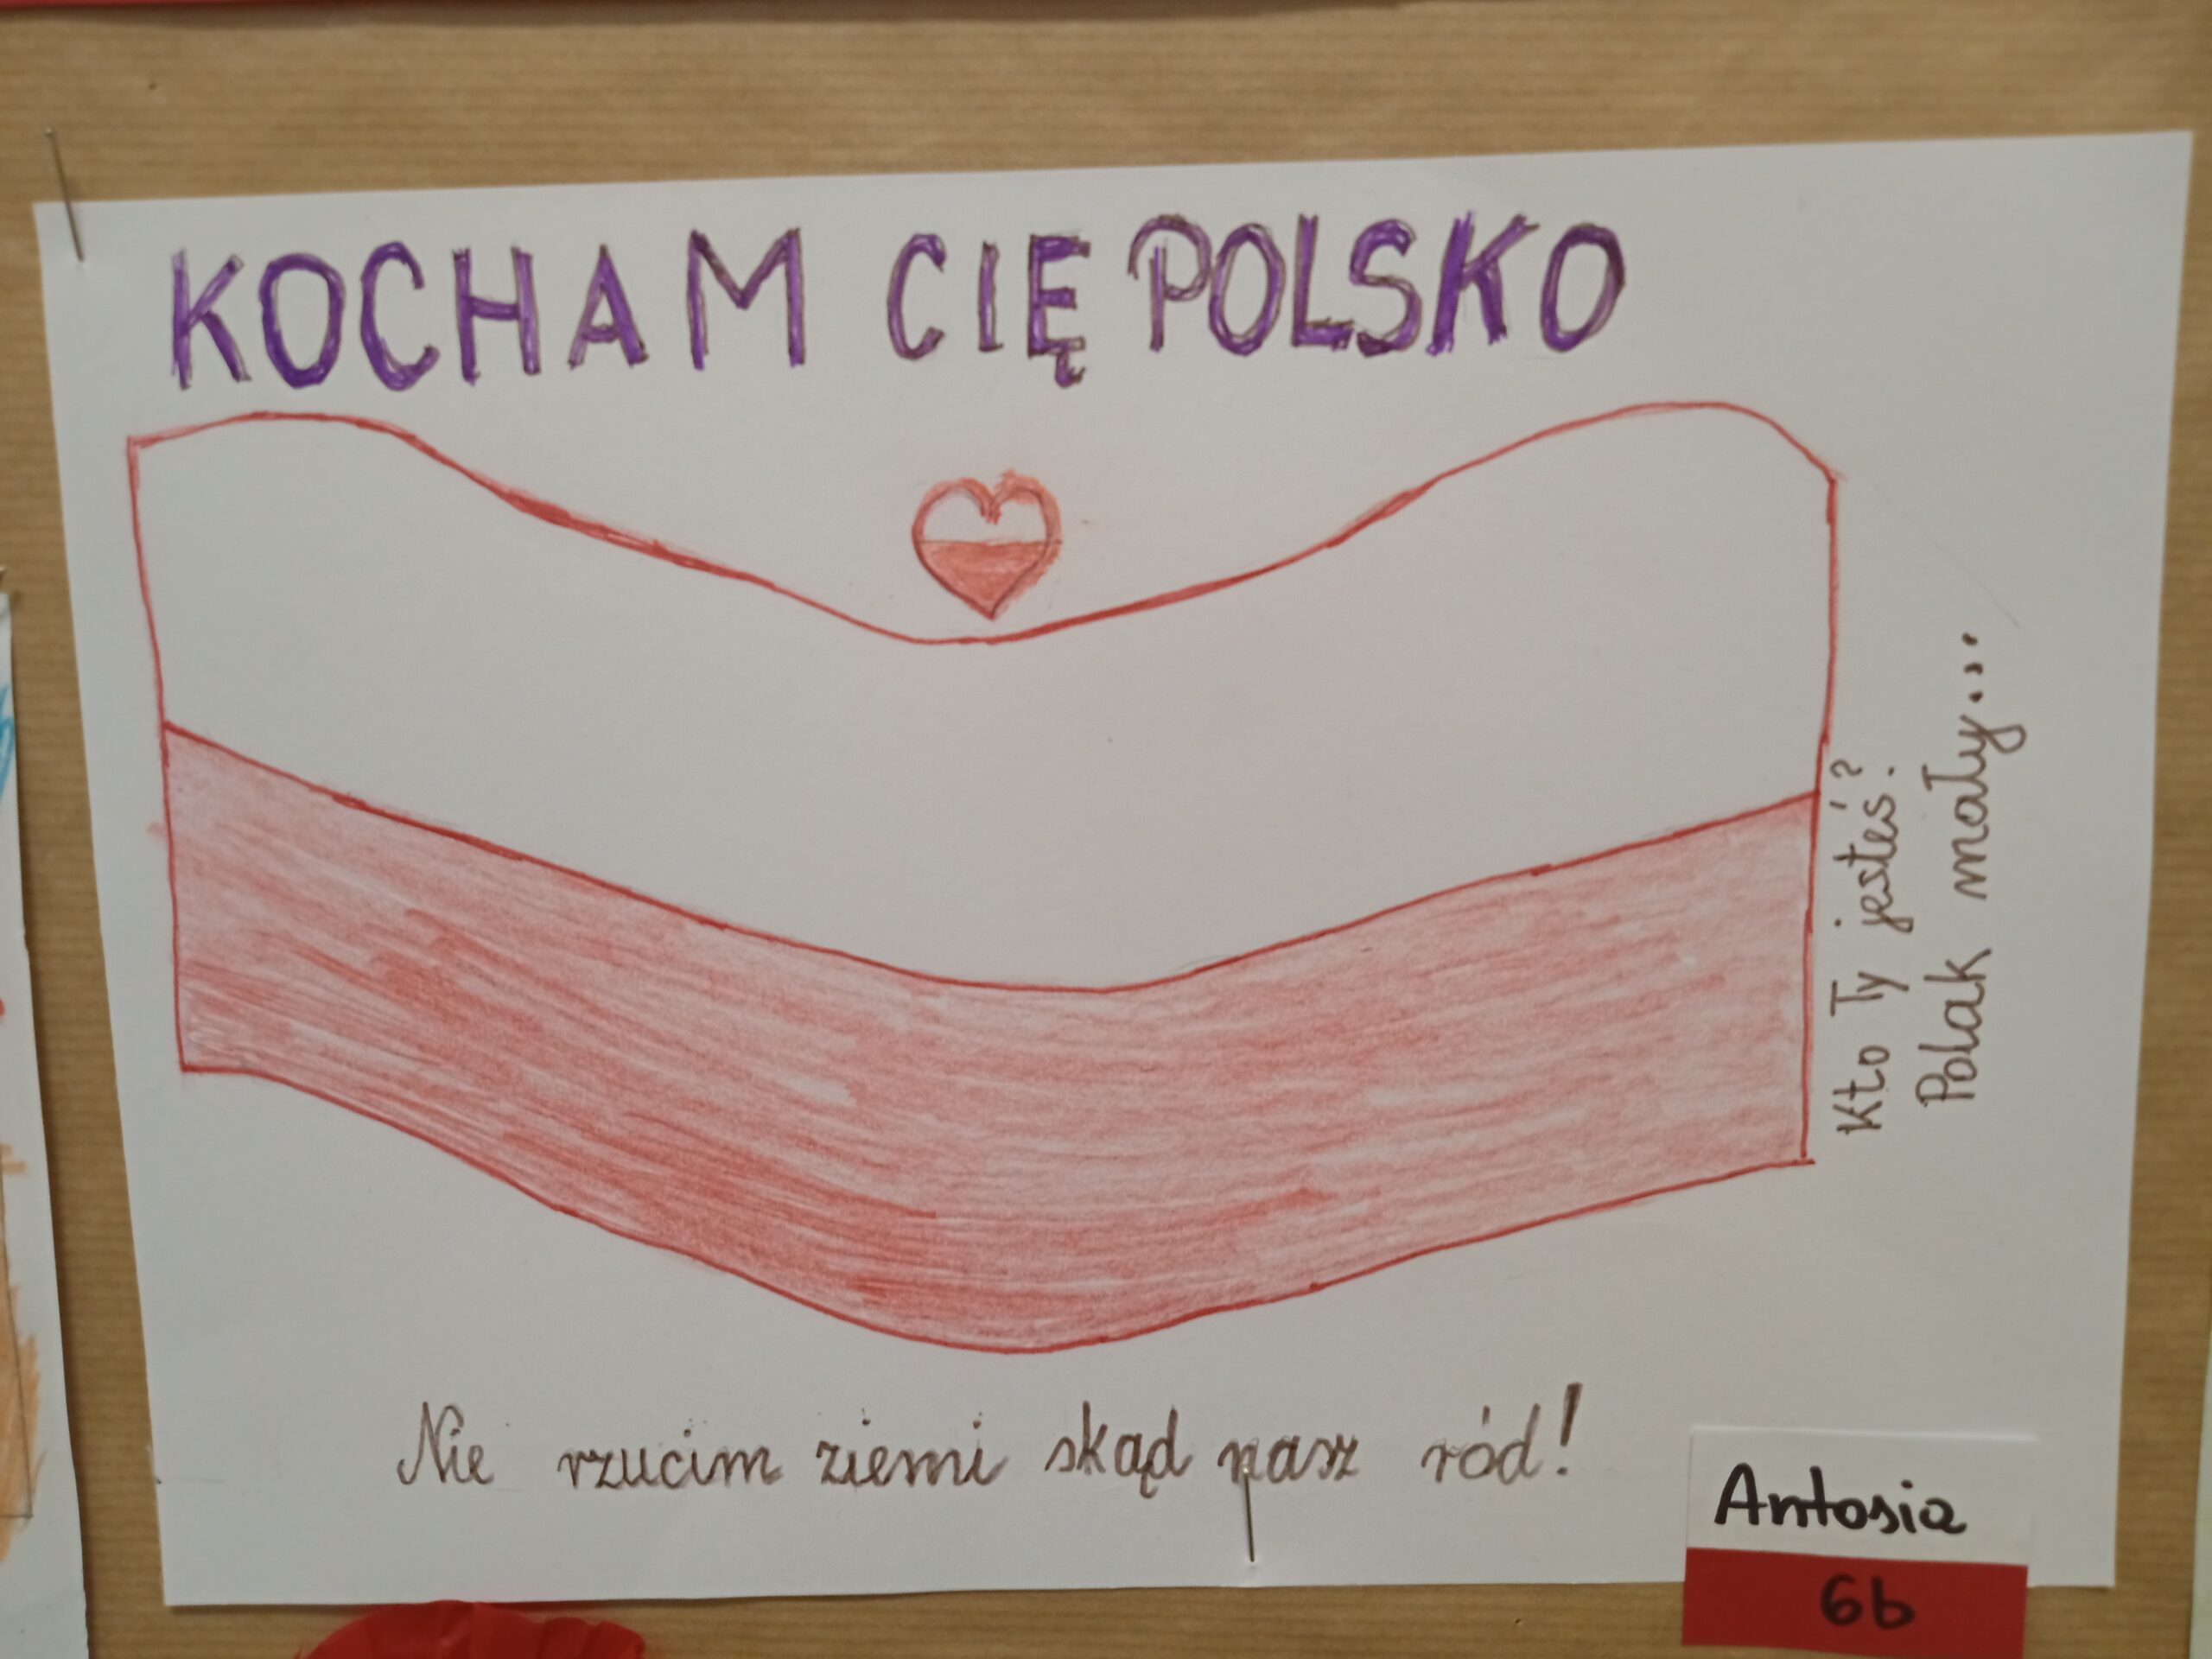 KOCHAM CIĘ POLSKO
Kto Ty jesteś?
Polak mały...
Nie rzucim ziemi skąd nasz ród!
Antosia
6b